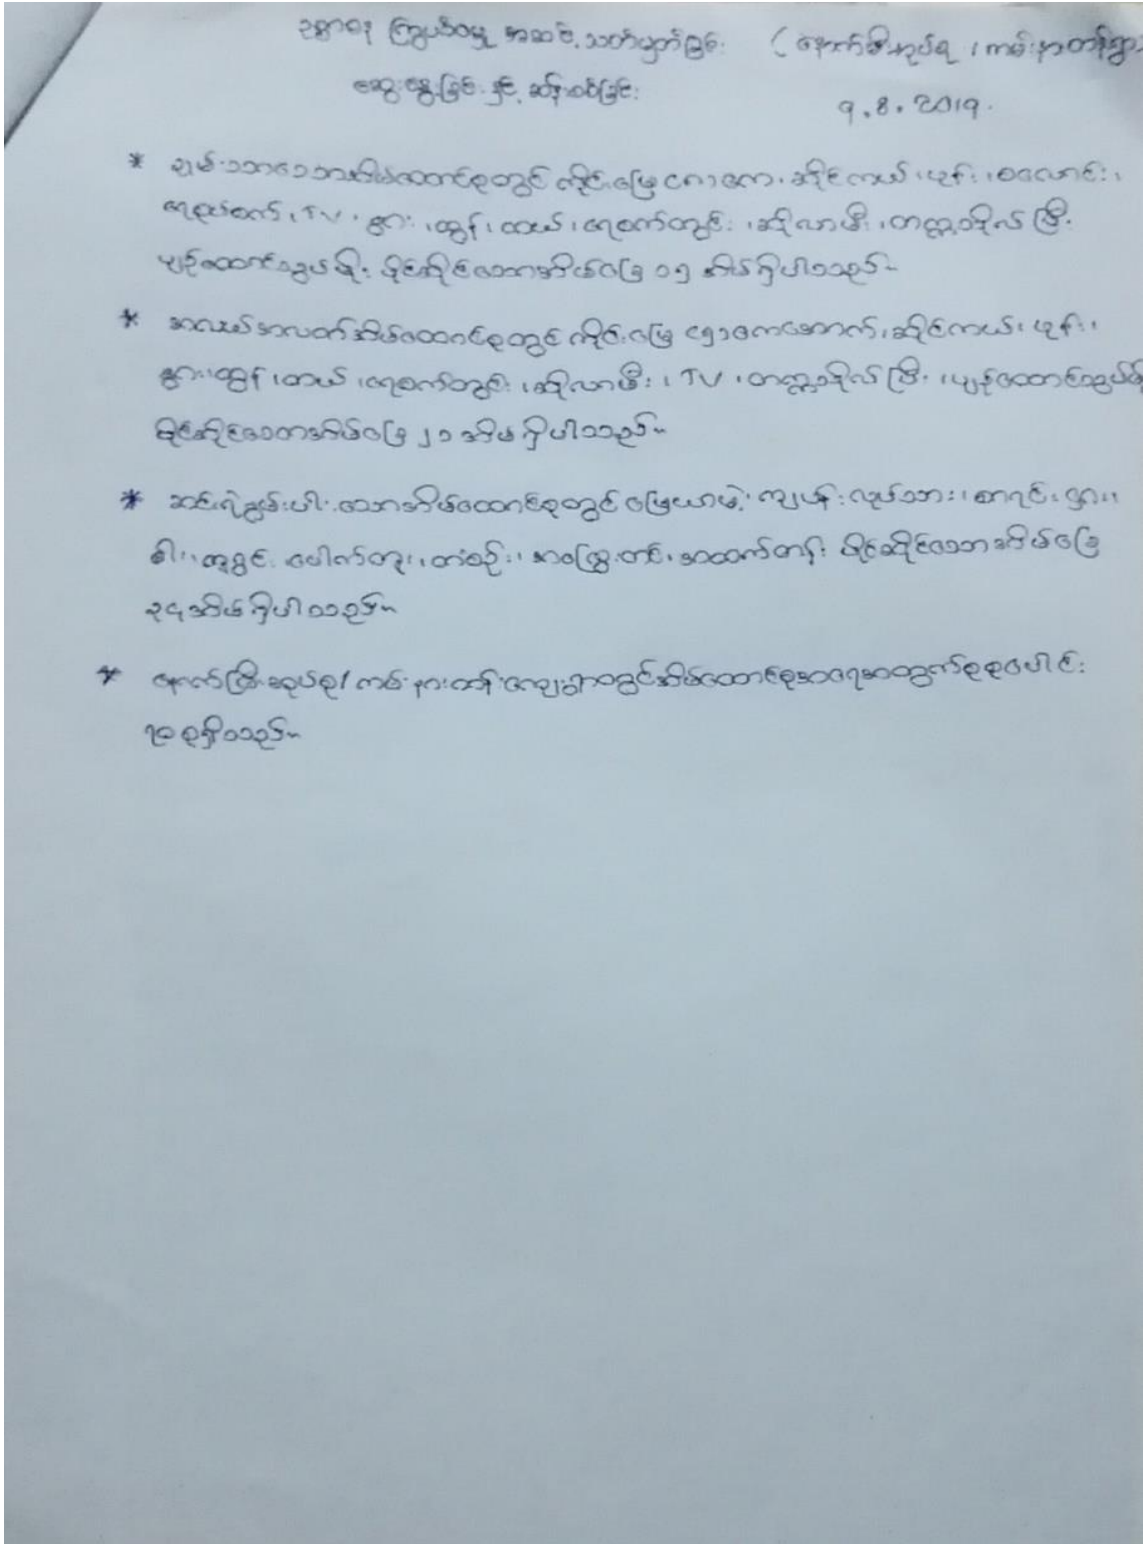 ဥစ္စာဓန ကြွယ်ဝမှု အဆင့် သတ်မှတ်ခြင်း (နောက်မီးဆုပ်စု / ကမ်းနားတန်းရွာ
ဆွေးနွေးခြင်း နှင့် ဆန်းစစ်ခြင်း 9.8.2019.
* ချမ်းသာသောအိမ်ထောင်စုတွင် ကိုင်းမြေ ဧက၊ ဆိုင်ကယ်၊ ဖုန်း၊ စလောင်း၊
ရေစုပ်စက်၊ TV၊ နွား၊ ထွန်၊ ထယ်၊ ရေစက်တွင်း၊ ဆိုလာမီး၊ တက္ကသိုလ်ပြီး
ပျဉ်ထောင်သွပ်မိုး ပိုင်ဆိုင်သောအိမ်ခြေ ၁၅ အိမ်ရှိပါသည်။
* အလယ်အလတ်အိမ်ထောင်စုတွင် ကိုင်းမြေ ဧကအောက်၊ ဆိုင်ကယ်၊ ဖုန်း၊
နွား၊ ထွန်၊ ထယ်၊ ရေစက်တွင်း၊ ဆိုလာမီး၊ TV၊ တက္ကသိုလ်ပြီး၊ ပျဉ်ထောင်သွပ်မိုး
ပိုင်ဆိုင်သောအိမ်ခြေ ၂၁ အိမ်ရှိပါသည်။
* ဆင်းရဲနွမ်းပါးသောအိမ်ထောင်စုတွင် မြေယာမဲ့၊ ကျပန်းလုပ်သား၊ စာရင်းငှား၊
ဓါး၊ တူရွင်း၊ ပေါက်တူး၊ တံစဉ်း၊ အကြွေးတင်၊ အထက်တန်း ပိုင်ဆိုင်သောအိမ်ခြေ
၃၄ အိမ်ရှိပါသည်။
* နောက်မီးဆုပ်စု/ ကမ်းနားတန်းကျေးရွာတွင်အိမ်ထောင်စုအရေအတွက်စုစုပေါင်း
၇၀ စုရှိသည်။